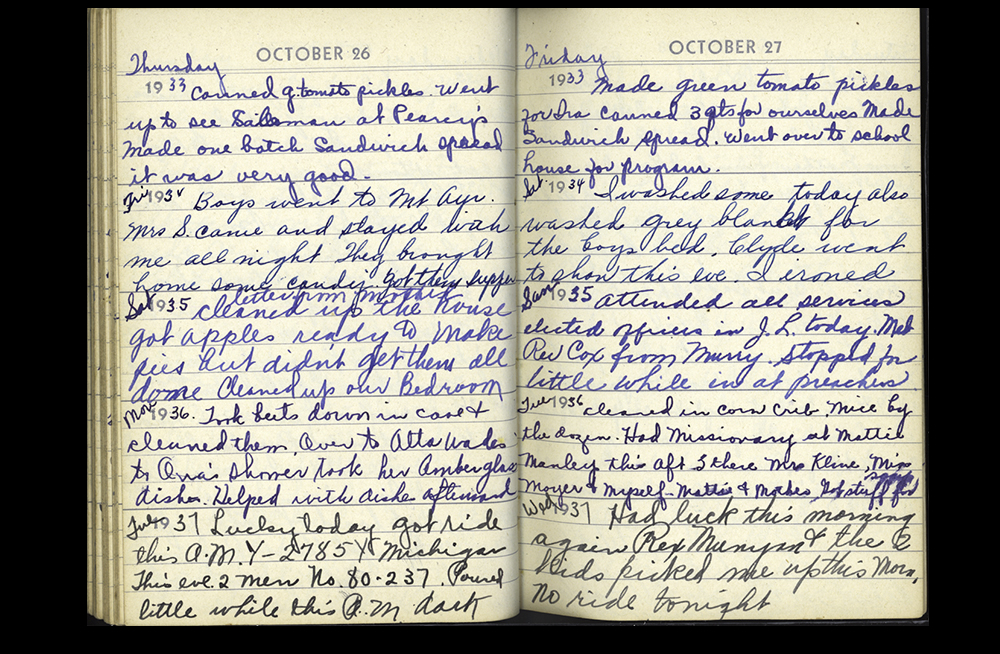 Thursday
OCTOBER 26
1933 Canned g. tomato pickles. Went
up to see Salesman at Pearcy's
Made one batch Sandwich spread
it was very good.
Fri 1934 Boys went to Mt Ayr.
Mrs S. came and stayed with
me all night They brought
home some candy. Got them supper
letter from Mother
Sat 1935 cleaned up the house
got apples ready to make
pies but didn't get them all
done Cleaned up our Bedroom
Mon 1936. Took beets down in cave &
cleaned them. Over to Atta Wades
to Shower, took her Amber glass
dishes. Helped with dishes afterward
Tue 1937 Lucky today got ride
this A.M. Y-2785Y Michigan
This eve. 2 men No. 80-237. Poured
little while this P.M. dark
Friday
OCTOBER 27
1933 Made green tomato pickles
for Ira Canned 3 qts for ourselves Made
Sandwich spread. Went over to school
house for program.
Sat 1934 I washed some today also
washed grey blanket for
the boys bed. Clyde went
to show this eve. I ironed
Sun 1935 Attended all services
elected officers in J.L. today. Met
Rev Cox from Murry. Stopped for
little while in at preachers
Tue 1936 cleaned in corn crib. Mice by
the dozen. Had Missionary at Mattie
Manley this aft 5 there Mrs Kline, Miss
Moyer & Myself- Mattie & Got stuff for
Wed 1937 Had luck this morning
again Rex Munyan & the 2
kids picked me up this Morn,
No ride tonight